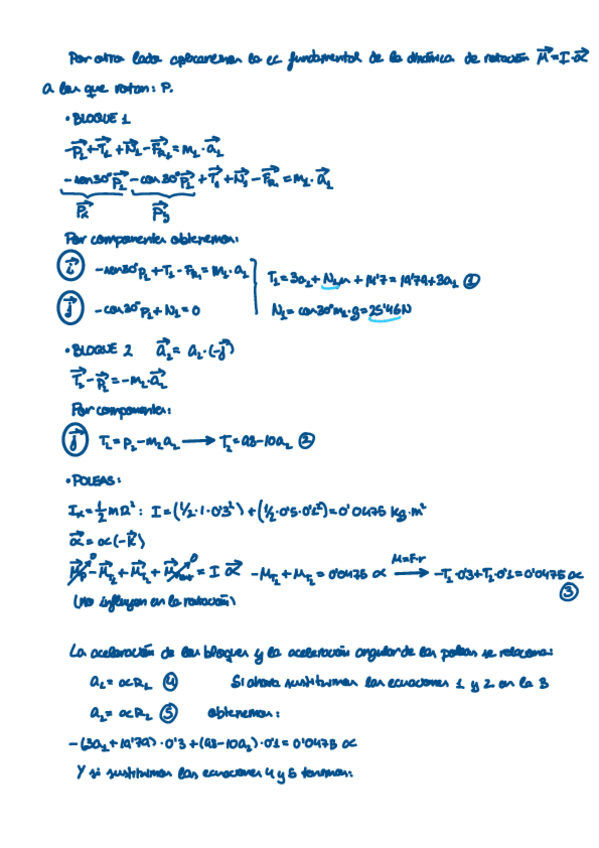 Por otro lado aplicaremos la ec fundamental de la dinámica de rotación M⃗=I·α⃗
a los que rotan: P.
• BLOQUE 1
-P⃗₁+T⃗₁+N⃗₁-F⃗R₁=m₁·a⃗₁
-sen30°P⃗₁-cos30°P⃗₁+T⃗₁+N⃗₁-F⃗R₁=m₁·a⃗₁
P⃗x P⃗y
Por componentes obtenemos:
i⃗ -sen30°P₁+T₁-FR₁=m₁·a₁ T₁=3a₁+N₁μ+14'7=19'79+3a₁ ①
j⃗ -cos30°P₁+N₁=0 N₁=cos30°m₁·g=25'46N
• BLOQUE 2 a⃗₂=a₂·(-j⃗)
T⃗₂-P⃗₂=-m₂·a⃗₂
Por componentes:
j⃗ T₂=P₂-m₂a₂ → T₂=98-10a₂ ②
• POLEAS:
Ix=½mR²: I=(1/2·1·0'3²)+(1/2·0'5·0'1²)=0'0475 kg·m²
α⃗=α(-k⃗)
-M⃗T₁+M⃗T₂ = I α⃗ -MT₁+MT₂=0'0475 α M=F·r → -T₁·0'3+T₂·0'1=0'0475 α
(no influyen en la rotación) ③
La aceleración de los bloques y la aceleración angular de las poleas se relaciona:
a₁=αR₁ ④ Si ahora sustituimos las ecuaciones 1 y 2 en la 3
a₂=αR₂ ⑤ obtenemos:
-(3a₁+19'79)·0'3+(98-10a₂)·0'1=0'0475 α
Y si sustituimos las ecuaciones 4 y 5 tenemos: